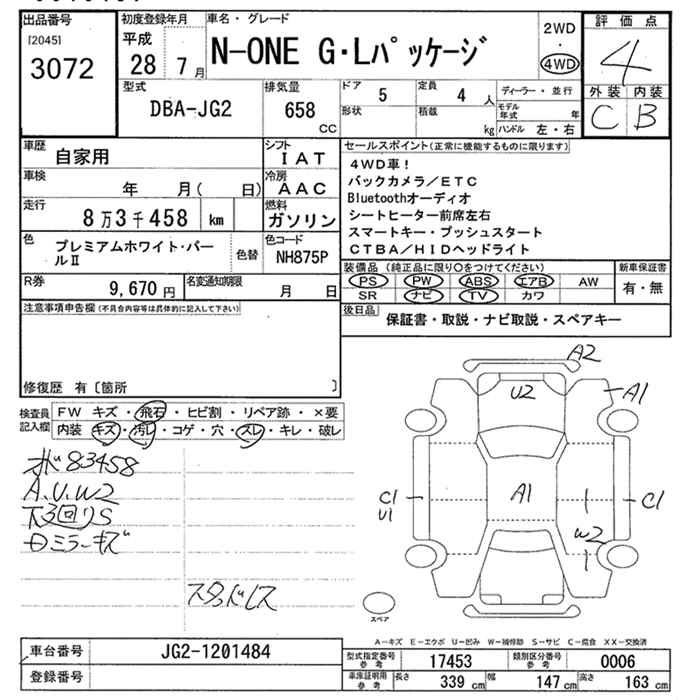 出品番号
[2045]
3072
初度登録年月
平成
28年 7月
車名・グレード
N-ONE G・Lパッケージ
2WD
・
4WD
評価点
4
外装 内装
C B
型式
DBA-JG2
排気量
658 CC
ドア 5
定員 4 人
形状
積載 kg
ディーラー・並行
モデル年式 年
ハンドル 左・右
車歴 自家用
シフト IAT
車検 年 月( 日)
冷房 AAC
走行 8万3千458 km
燃料 ガソリン
色 プレミアムホワイト・パールⅡ
色替
色コード NH875P
R券 9,670円
名変通知期限 月 日
セールスポイント(正常に機能するものに限ります)
4WD車!
バックカメラ/ETC
Bluetoothオーディオ
シートヒーター前席左右
スマートキー・プッシュスタート
CTBA/HIDヘッドライト
装備品 (純正品に限り○をつけてください)
PS PW ABS エアB AW
SR ナビ TV カワ
新車保証書
有・無
後日品 保証書・取説・ナビ取説・スペアキー
注意事項申告欄(不具合内容等は具体的に記入して下さい)
修復歴 有〔箇所 〕
検査員記入欄
FW キズ・飛石・ヒビ割・リペア跡・×要
内装 キズ・汚レ・コゲ・穴・スレ・キレ・破レ
ボ83458
A.U.W2
下回りS
Dミラーキズ
スタッドレス
A2
U2
A1
C1
U1
A1
C1
W2
スペア
A-キズ E-エクボ U-凹み W-補修跡 S-サビ C-腐食 XX-交換済
車台番号 JG2-1201484
登録番号
型式指定番号 参考 17453
類別区分番号 参考 0006
車庫証明用 参考 長さ 339 cm 幅 147 cm 高さ 163 cm